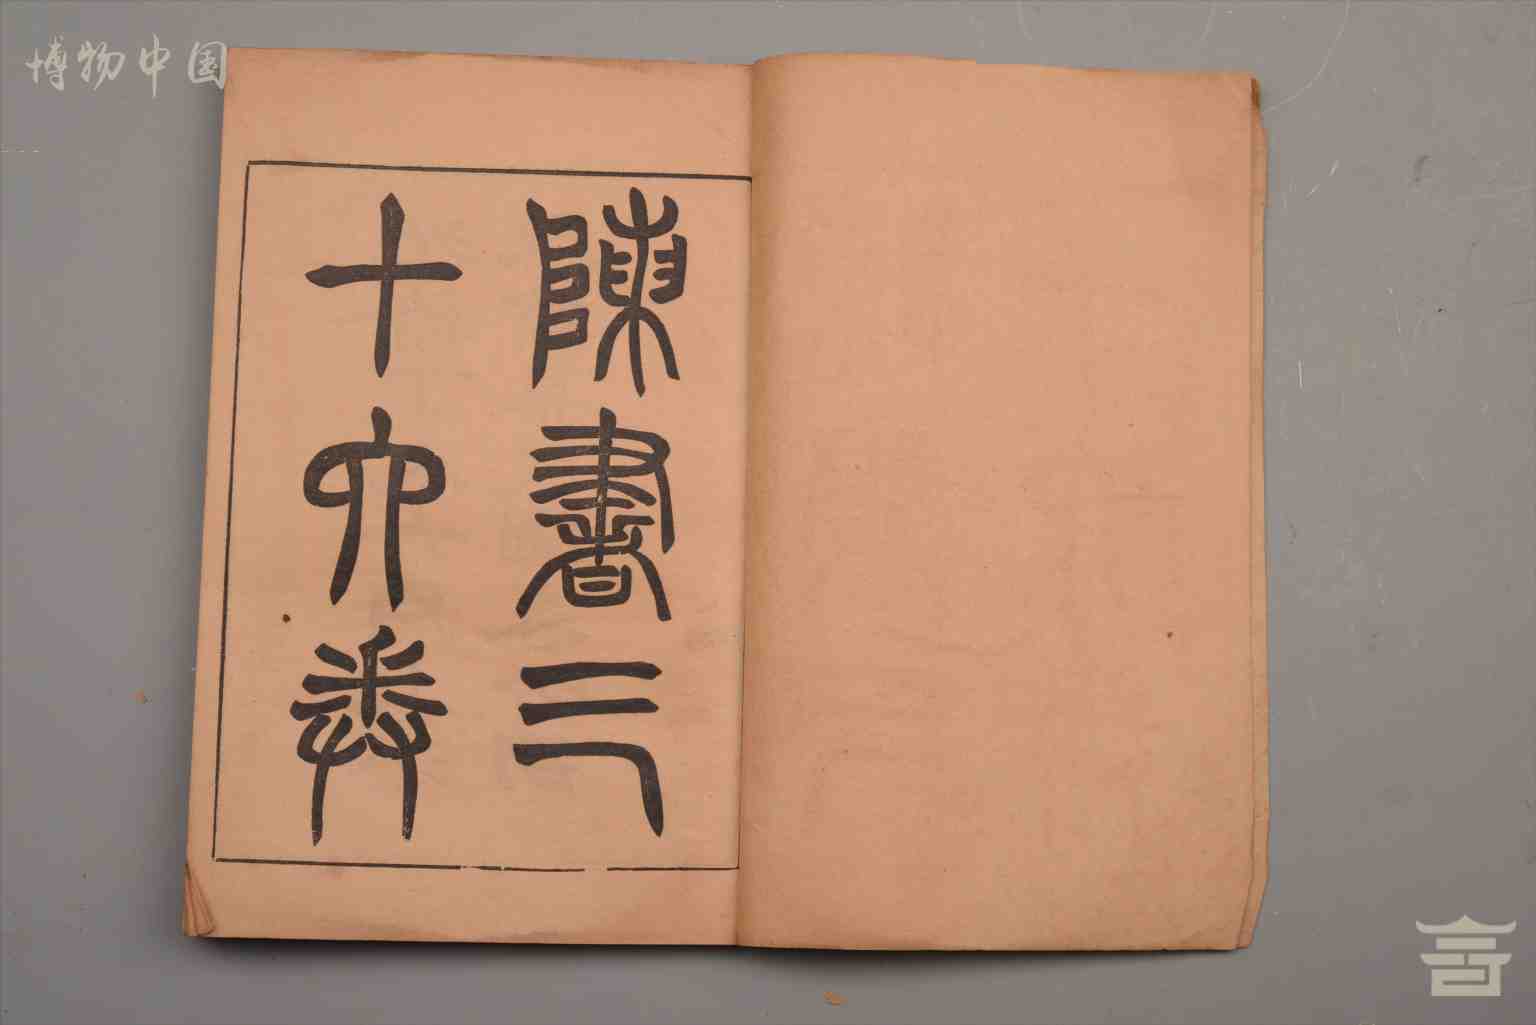 博物中国
陳書三
十六卷